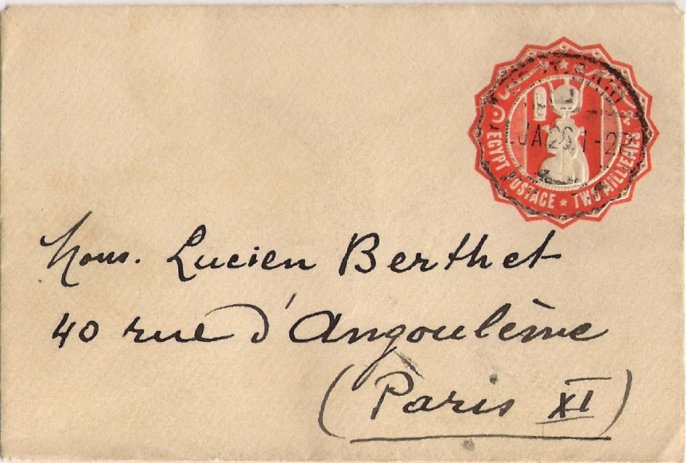 EGYPT POSTAGE * TWO MILLIEMES
JA 26 1-2P
Mons. Lucien Berthet
40 rue d'Angoulême
(Paris XI)